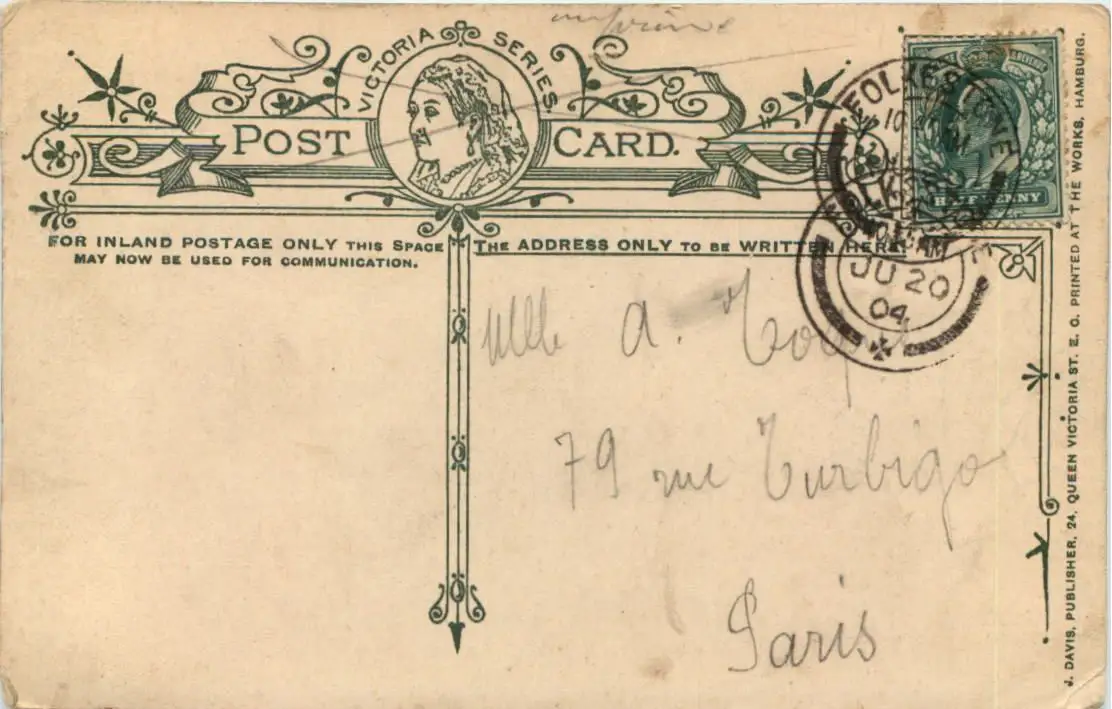 VICTORIA SERIES
POST CARD.
FOR INLAND POSTAGE ONLY THIS SPACE
MAY NOW BE USED FOR COMMUNICATION.
THE ADDRESS ONLY TO BE WRITTEN HERE.
HALFPENNY
FOLKESTONE
FOLKESTONE
JU 20
04
Mlle A.
79 rue Turbigo
Paris
J. DAVIS, PUBLISHER, 24, QUEEN VICTORIA ST. E. C. PRINTED AT THE WORKS, HAMBURG.